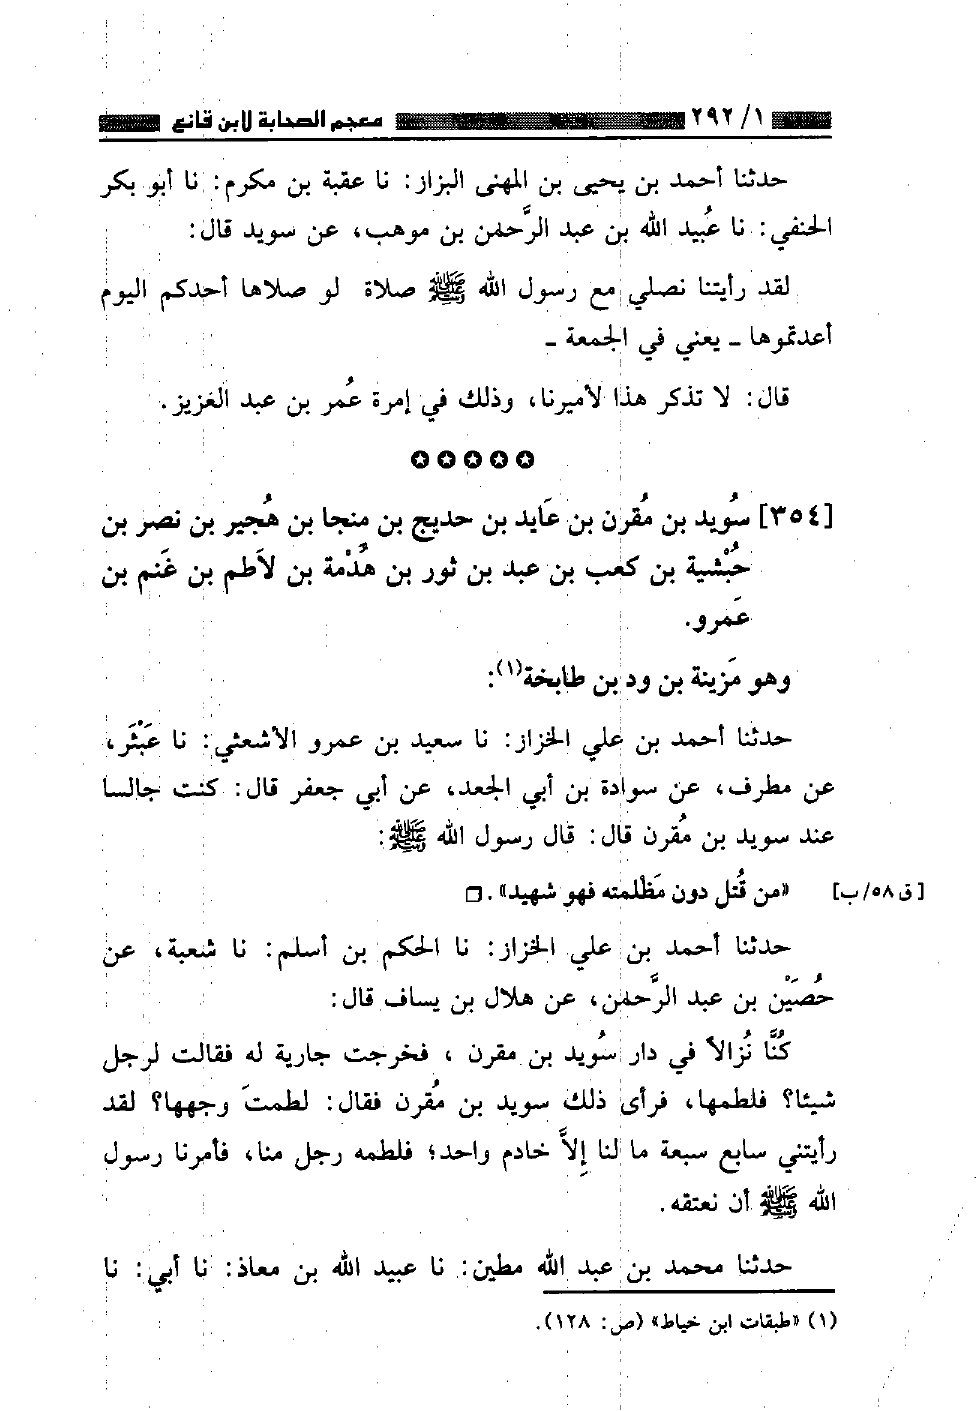 ١/ ٢٩٢ معجم الصحابة لابن قانع
حدثنا أحمد بن يحيى بن المهنى البزاز: نا عقبة بن مكرم: نا أبو بكر
الحنفي: نا عُبيد الله بن عبد الرَّحمٰن بن موهب، عن سويد قال:
لقد رأيتنا نصلي مع رسول الله ﷺ صلاة لو صلاها أحدكم اليوم
أعدتموها ـ يعني في الجمعة ـ
قال: لا تذكر هذا لأميرنا، وذلك في إمرة عُمر بن عبد العزيز.
✪✪✪✪✪
[٣٥٤] سُويد بن مُقرن بن عَايد بن حديج بن منجا بن هُجير بن نصر بن
حُبْشية بن كعب بن عبد بن ثور بن هُذْمة بن لاَطم بن غَنم بن
عَمرو.
وهو مَزينة بن ود بن طابخة(١):
حدثنا أحمد بن علي الخزاز: نا سعيد بن عمرو الأشعثي: نا عَبْثَر،
عن مطرف، عن سوادة بن أبي الجعد، عن أبي جعفر قال: كنت جالسا
عند سويد بن مُقرن قال: قال رسول الله ﷺ:
«من قُتل دون مَظلمته فهو شهيد». □ [ق ٥٨/ ب]
حدثنا أحمد بن علي الخزاز: نا الحكم بن أسلم: نا شعبة، عن
حُصَيْن بن عبد الرَّحمٰن، عن هلال بن يساف قال:
كُنَّا نُزالاً في دار سُويد بن مقرن ، فخرجت جارية له فقالت لرجل
شيئا؟ فلطمها، فرأى ذلك سويد بن مُقرن فقال: لطمتَ وجهها؟ لقد
رأيتني سابع سبعة ما لنا إِلاَّ خادم واحد؛ فلطمه رجل منا، فأمرنا رسول
الله ﷺ أن نعتقه.
حدثنا محمد بن عبد الله مطين: نا عبيد الله بن معاذ: نا أبي: نا
(١) «طبقات ابن خياط» (ص: ١٢٨).